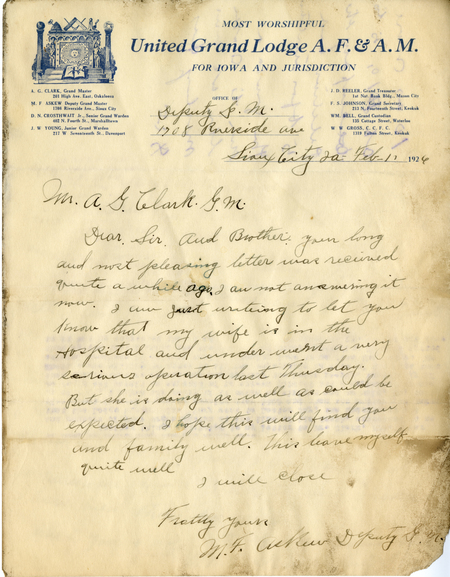 MOST WORSHIPFUL
United Grand Lodge A. F. & A. M.
FOR IOWA AND JURISDICTION
A. G. CLARK, Grand Master
201 High Ave. East, Oskaloosa
M. F ASKEW Deputy Grand Master
1708 Riverside Ave., Sioux City
D. N. CROSTHWAIT Jr., Senior Grand Warden
402 N. Fourth St., Marshalltown
J. W YOUNG, Junior Grand Warden
217 W Seventeenth St., Davenport
J. D. REELER, Grand Treasurer
1st Nat Bank Bldg., Mason City
F. S. JOHNSON, Grand Secretary
Fourteenth Street, Keokuk
WM. BELL, Grand Custodian
Cottage Street, Waterloo
W W GROSS, C. C. F. C.
1319 Fulton Street, Keokuk
OFFICE OF
Deputy G. M.
1708 Riverside ave
Sioux City Ia Feb-1 1926
Mr. A. G. Clark. G. M.
Dear Sir. And Brother: your long
and most pleasing letter was received
quite a while ago, I am not answering it
now. I am just writeing to let you
know that my wife is in the
Hospital and under went a very
serious operation last Thusday.
But she is doing as well as could be
expected. I hope this will find you
and family well. This leave myself
quite well
I will close
Fratly yours
M. F. Askew Deputy G. M.